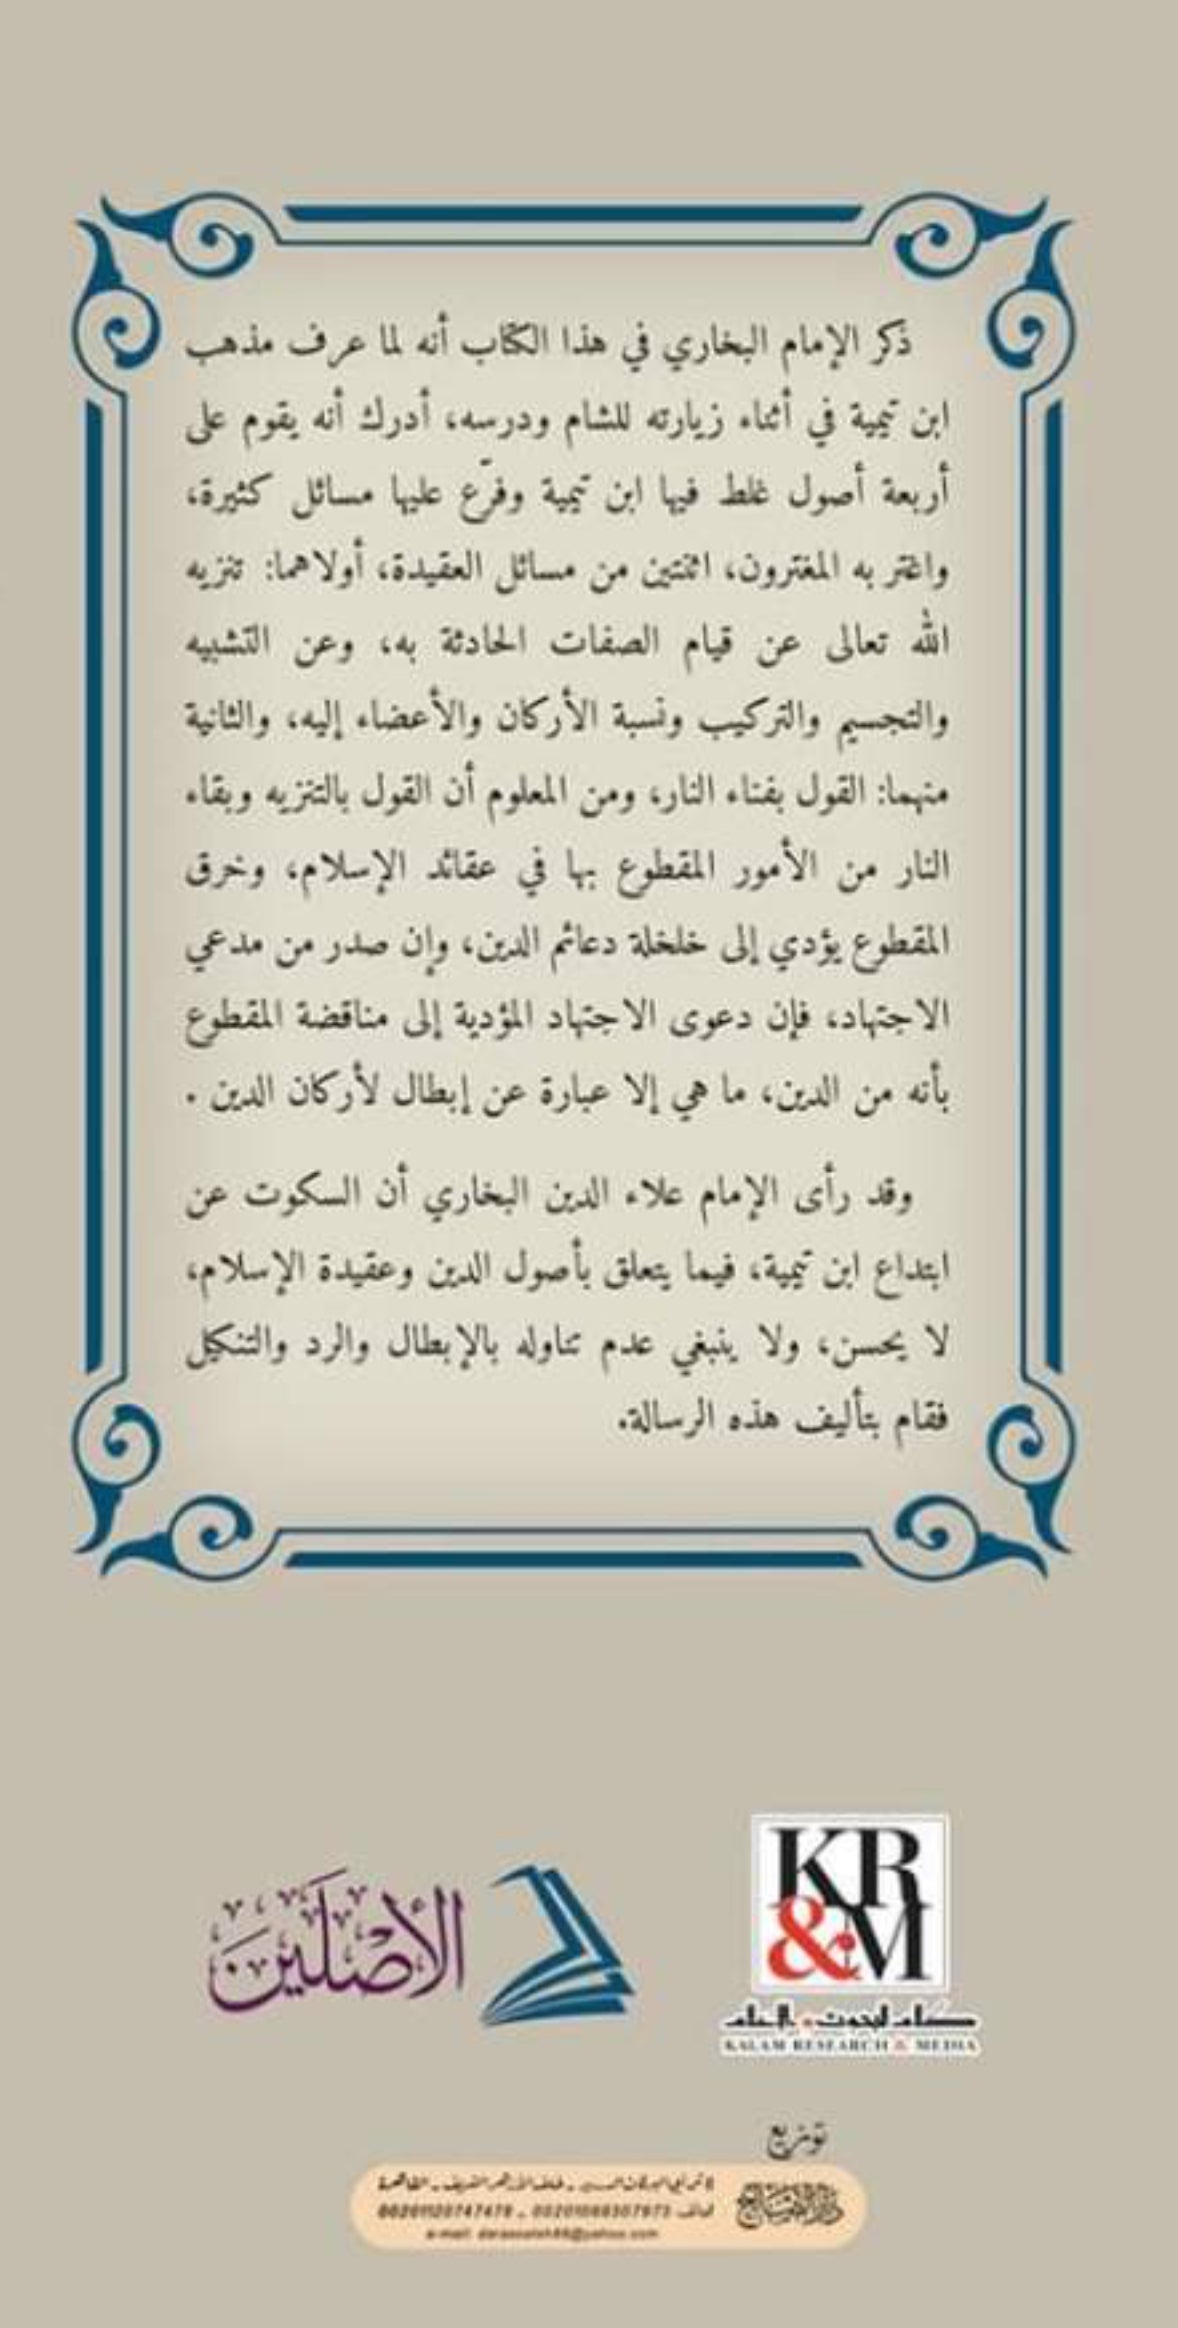 ذكر الإمام البخاري في هذا الكتاب أنه لما عرف مذهب
ابن تيمية في أثناء زيارته للشام ودرسه، أدرك أنه يقوم على
أربعة أصول غلط فيها ابن تيمية وفرّع عليها مسائل كثيرة،
واغتر به المغترون، اثنتين من مسائل العقيدة، أولاهما: تنزيه
الله تعالى عن قيام الصفات الحادثة به، وعن التشبيه
والتجسيم والتركيب ونسبة الأركان والأعضاء إليه، والثانية
منهما: القول بفناء النار، ومن المعلوم أن القول بالتنزيه وبقاء
النار من الأمور المقطوع بها في عقائد الإسلام، وخرق
المقطوع يؤدي إلى خلخلة دعائم الدين، وإن صدر من مدعي
الاجتهاد، فإن دعوى الاجتهاد المؤدية إلى مناقضة المقطوع
بأنه من الدين، ما هي إلا عبارة عن إبطال لأركان الدين .
وقد رأى الإمام علاء الدين البخاري أن السكوت عن
ابتداع ابن تيمية، فيما يتعلق بأصول الدين وعقيدة الإسلام،
لا يحسن، ولا ينبغي عدم تناوله بالإبطال والرد والتنكيل
فقام بتأليف هذه الرسالة.
KR
&M
كلام للبحوث و الإعلام
KALAM RESEARCH & MEDIA
الأصلين
توزيع
خلف الأزهر الشريف - القاهرة
هاتف
e-mail: